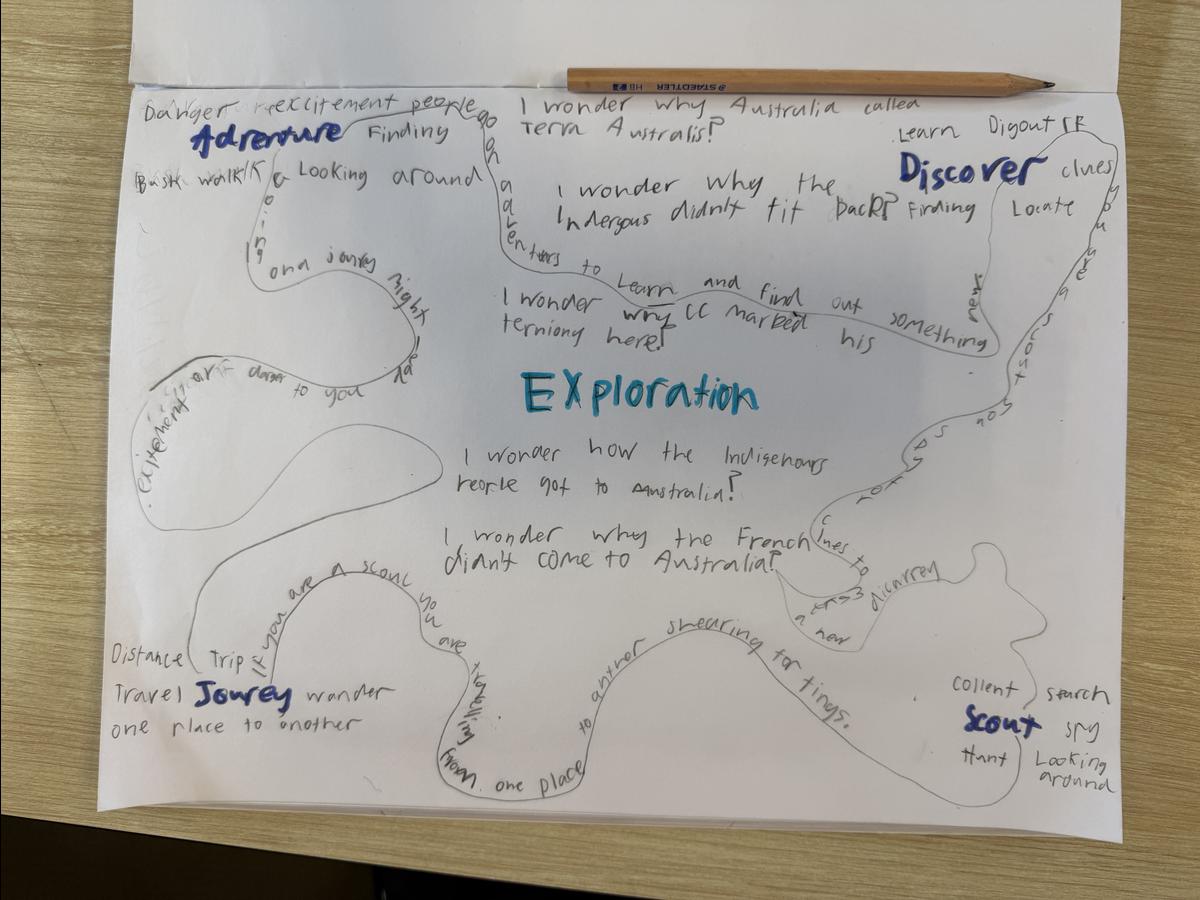 STAEDTLER
HB
Danger excitement people
Adventure Finding
Bush walk Looking around
go on a adventurs to Learn and find out something new
I wonder why Australia called
Terra Australis?
Learn Digout
Discover clues
Finding Locate
I wonder why the
Indergous didn't fit back?
I wonder why CC marbed his
here?
Going ond jourey might
danger to you
Exploration
I wonder how the Indigenours
people got to Australia?
I wonder why the French
didn't come to Australia?
you are a scout you
a new dicurrey
Distance Trip
Travel Jourey wander
one place to another
If you are A scout you are travelling from one place to anther shearing for tings.
Collent search
Scout spy
Hunt Looking
around